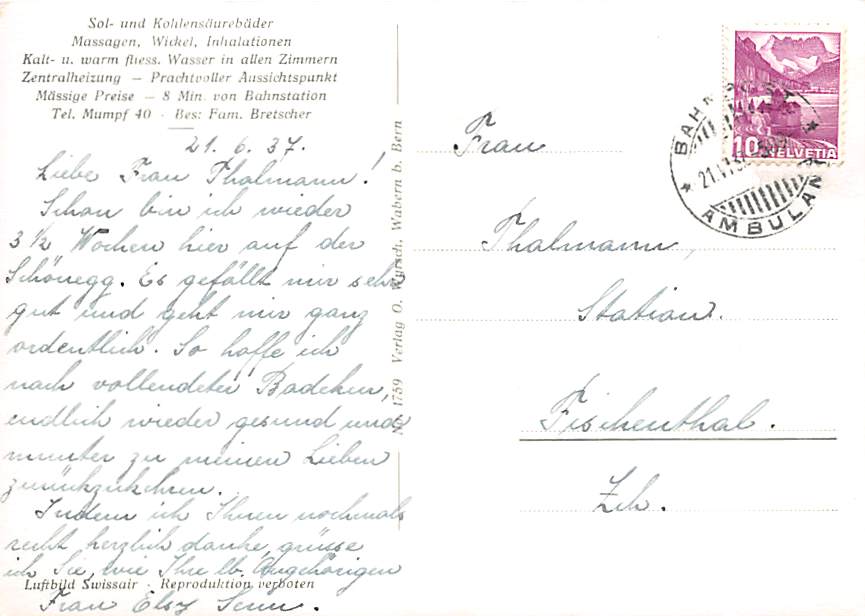 Sol- und Kohlensäurebäder
Massagen, Wickel, Inhalationen
Kalt- u. warm fliess. Wasser in allen Zimmern
Zentralheizung — Prachtvoller Aussichtspunkt
Mässige Preise — 8 Min. von Bahnstation
Tel. Mumpf 40 · Bes: Fam. Bretscher
21. 6. 37.
Liebe Frau Thalmann!
Schon bin ich wieder
3 ½ Wochen hier auf der
Schönegg. Es gefällt mir sehr
gut und geht mir ganz
ordentlich. So hoffe ich
nach vollendeter Badekur,
endlich wieder gesund und
munter zu meinen Lieben
zurückzukehren.
Indem ich Ihnen nochmals
recht herzlich danke, grüsse
ich Sie, wie Ihre lb. Angehörigen
Luftbild Swissair · Reproduktion verboten
Frau Elsy Senn.
No. 1759 Verlag O. Wyrsch, Wabern b. Bern
Frau
Thalmann,
Station.
Fischenthal.
Zch.
10 HELVETIA
BAHNPOST
21.VI.37
AMBULANT